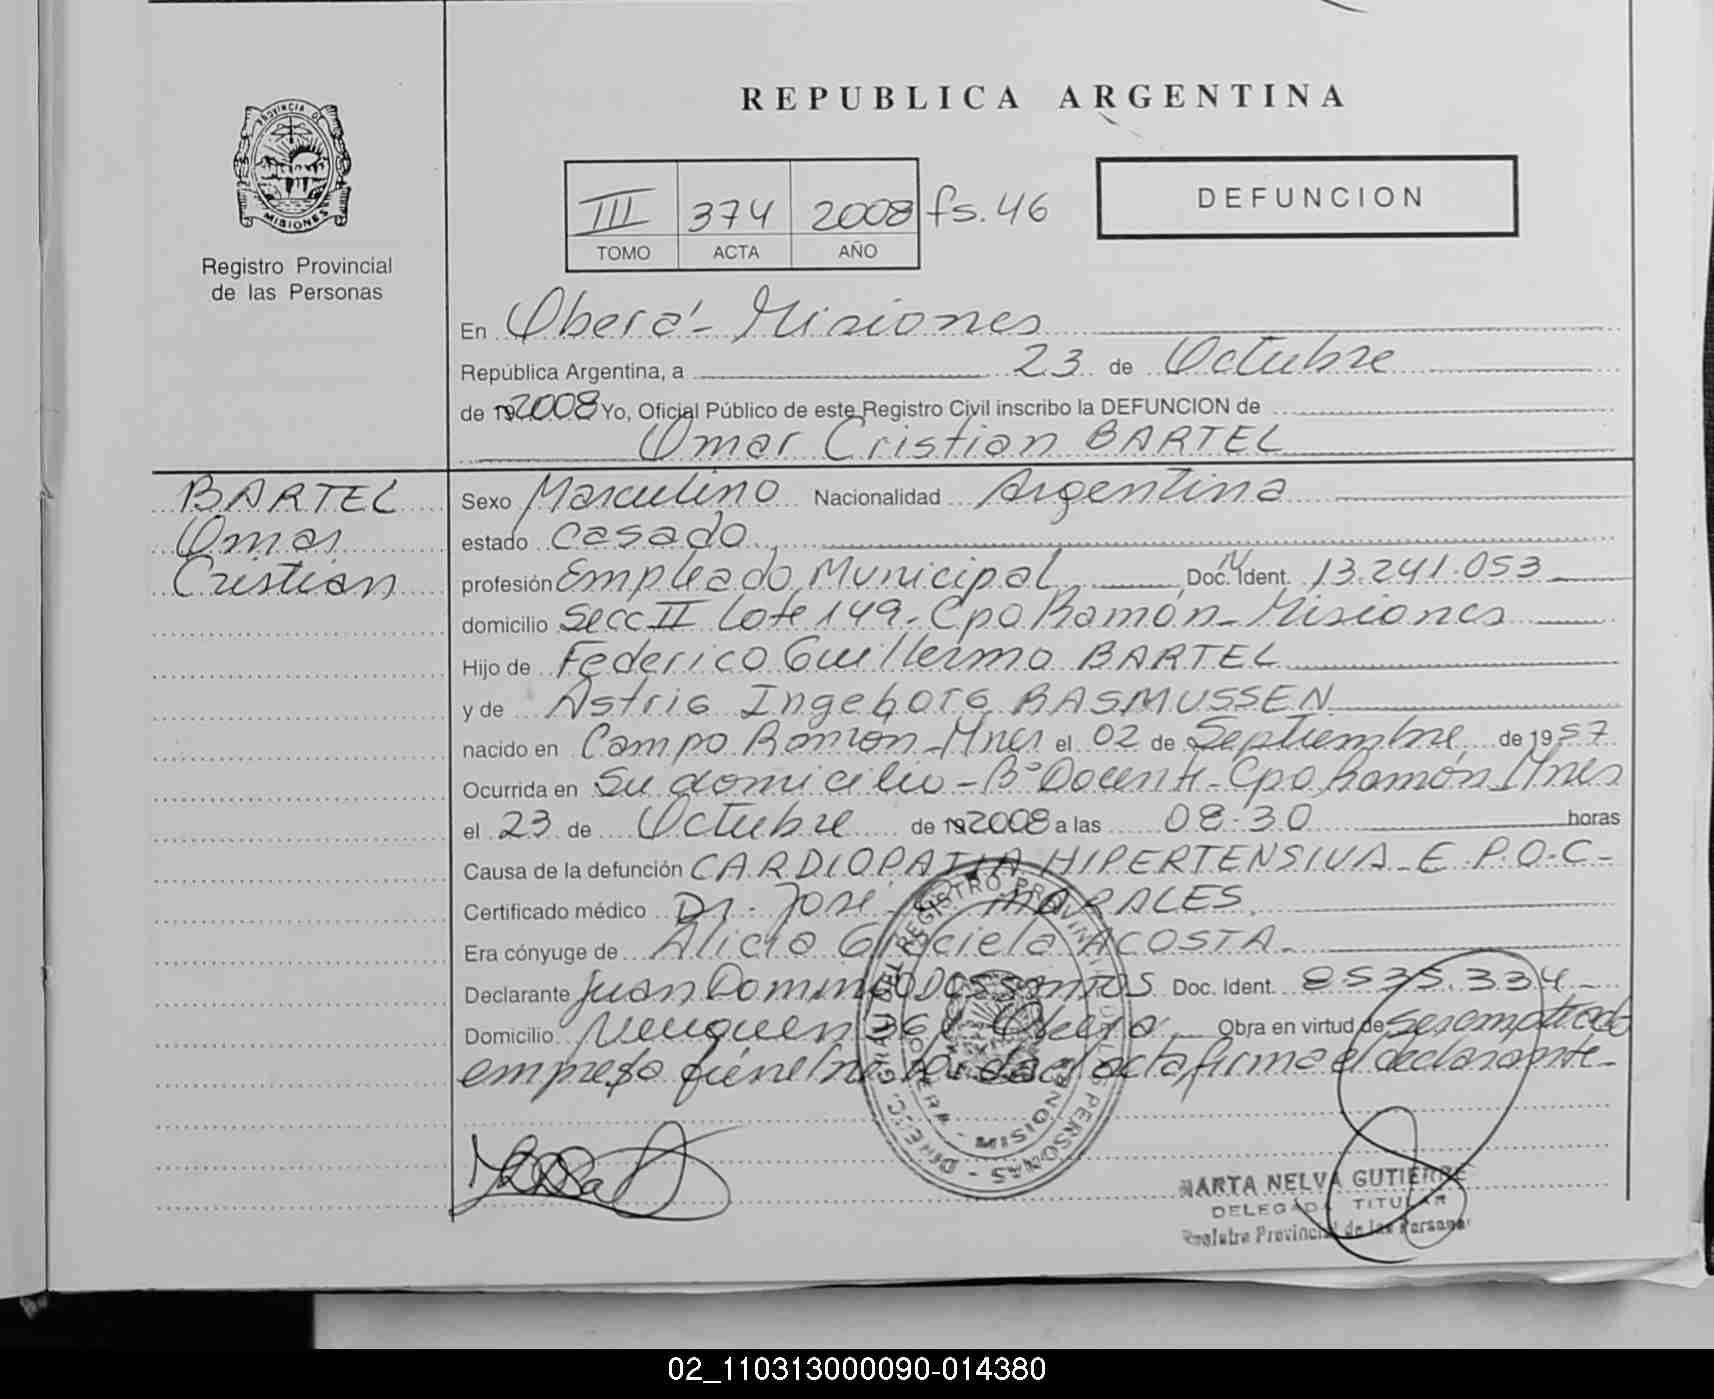 REPUBLICA ARGENTINA
PROVINCIA DE
MISIONES
Registro Provincial
de las Personas
III 374 2008 fs. 46
TOMO ACTA AÑO
DEFUNCION
En Oberá - Misiones
República Argentina, a 23 de Octubre
de 19 2008 Yo, Oficial Público de este Registro Civil inscribo la DEFUNCION de
Omar Cristian BARTEL
BARTEL
Omar
Cristian
Sexo Masculino Nacionalidad Argentina
estado casado
profesión Empleado Municipal Doc. Ident. 13.241.053
domicilio Secc II Lote 149 - Cpo Ramón - Misiones
Hijo de Federico Guillermo BARTEL
y de Astrid Ingeborg RASMUSSEN
nacido en Campo Ramon - Mnes el 02 de Septiembre de 1957
Ocurrida en Su domicilio - Bº Docente - Cpo Ramón Mnes
el 23 de Octubre de 19 2008 a las 08:30 horas
Causa de la defunción CARDIOPATIA HIPERTENSIVA - E.P.O.C -
Certificado médico Dr. José MORALES
Era cónyuge de Alicia Graciela ACOSTA -
Declarante Juan Domingo Dos Santos Doc. Ident. 8535.334 -
Domicilio Neuquen Oberá Obra en virtud de ser empleado
empresa fúnebre acta, firma el declarante -
DIREC. GRAL. DEL REGISTRO PROVINCIAL DE LAS PERSONAS -
OBERA - MISIONES
MARTA NELVA GUTIERRE
DELEGADA TITULAR
Registro Provincial de las Personas
02_110313000090-014380